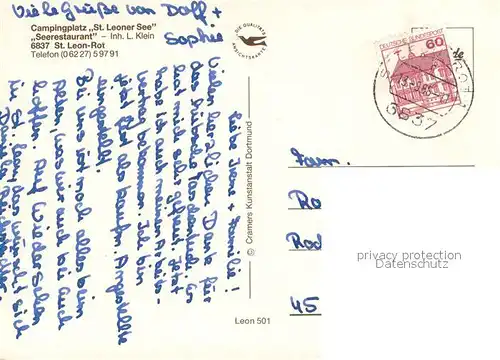 Viele Grüße von Dolf +
Sophie
Campingplatz „St. Leoner See"
„Seerestaurant" – Inh. L. Klein
6837 St. Leon-Rot
Telefon (0 62 27) 5 97 91
DIE QUALITÄTS
ANSICHTSKARTE
Liebe Irene + Familie!
Vielen herzlichen Dank für
das hübsche Taschentuch. Es
hat mich sehr gefreut. Jetzt
habe ich auch meinen Arbeits-
vertrag bekommen. Ich bin
jetzt fest als kaufm. Angestellte
eingestellt.
Bei uns ist noch alles beim
alten, was wir auch bei euch
hoffen. Auf Wiedersehen
in St. Leon das wünscht sich
© Cramers Kunstanstalt Dortmund
Leon 501
DEUTSCHE BUNDESPOST
60
6837
Fam.
Ro
Rod
45
privacy protection
Datenschutz